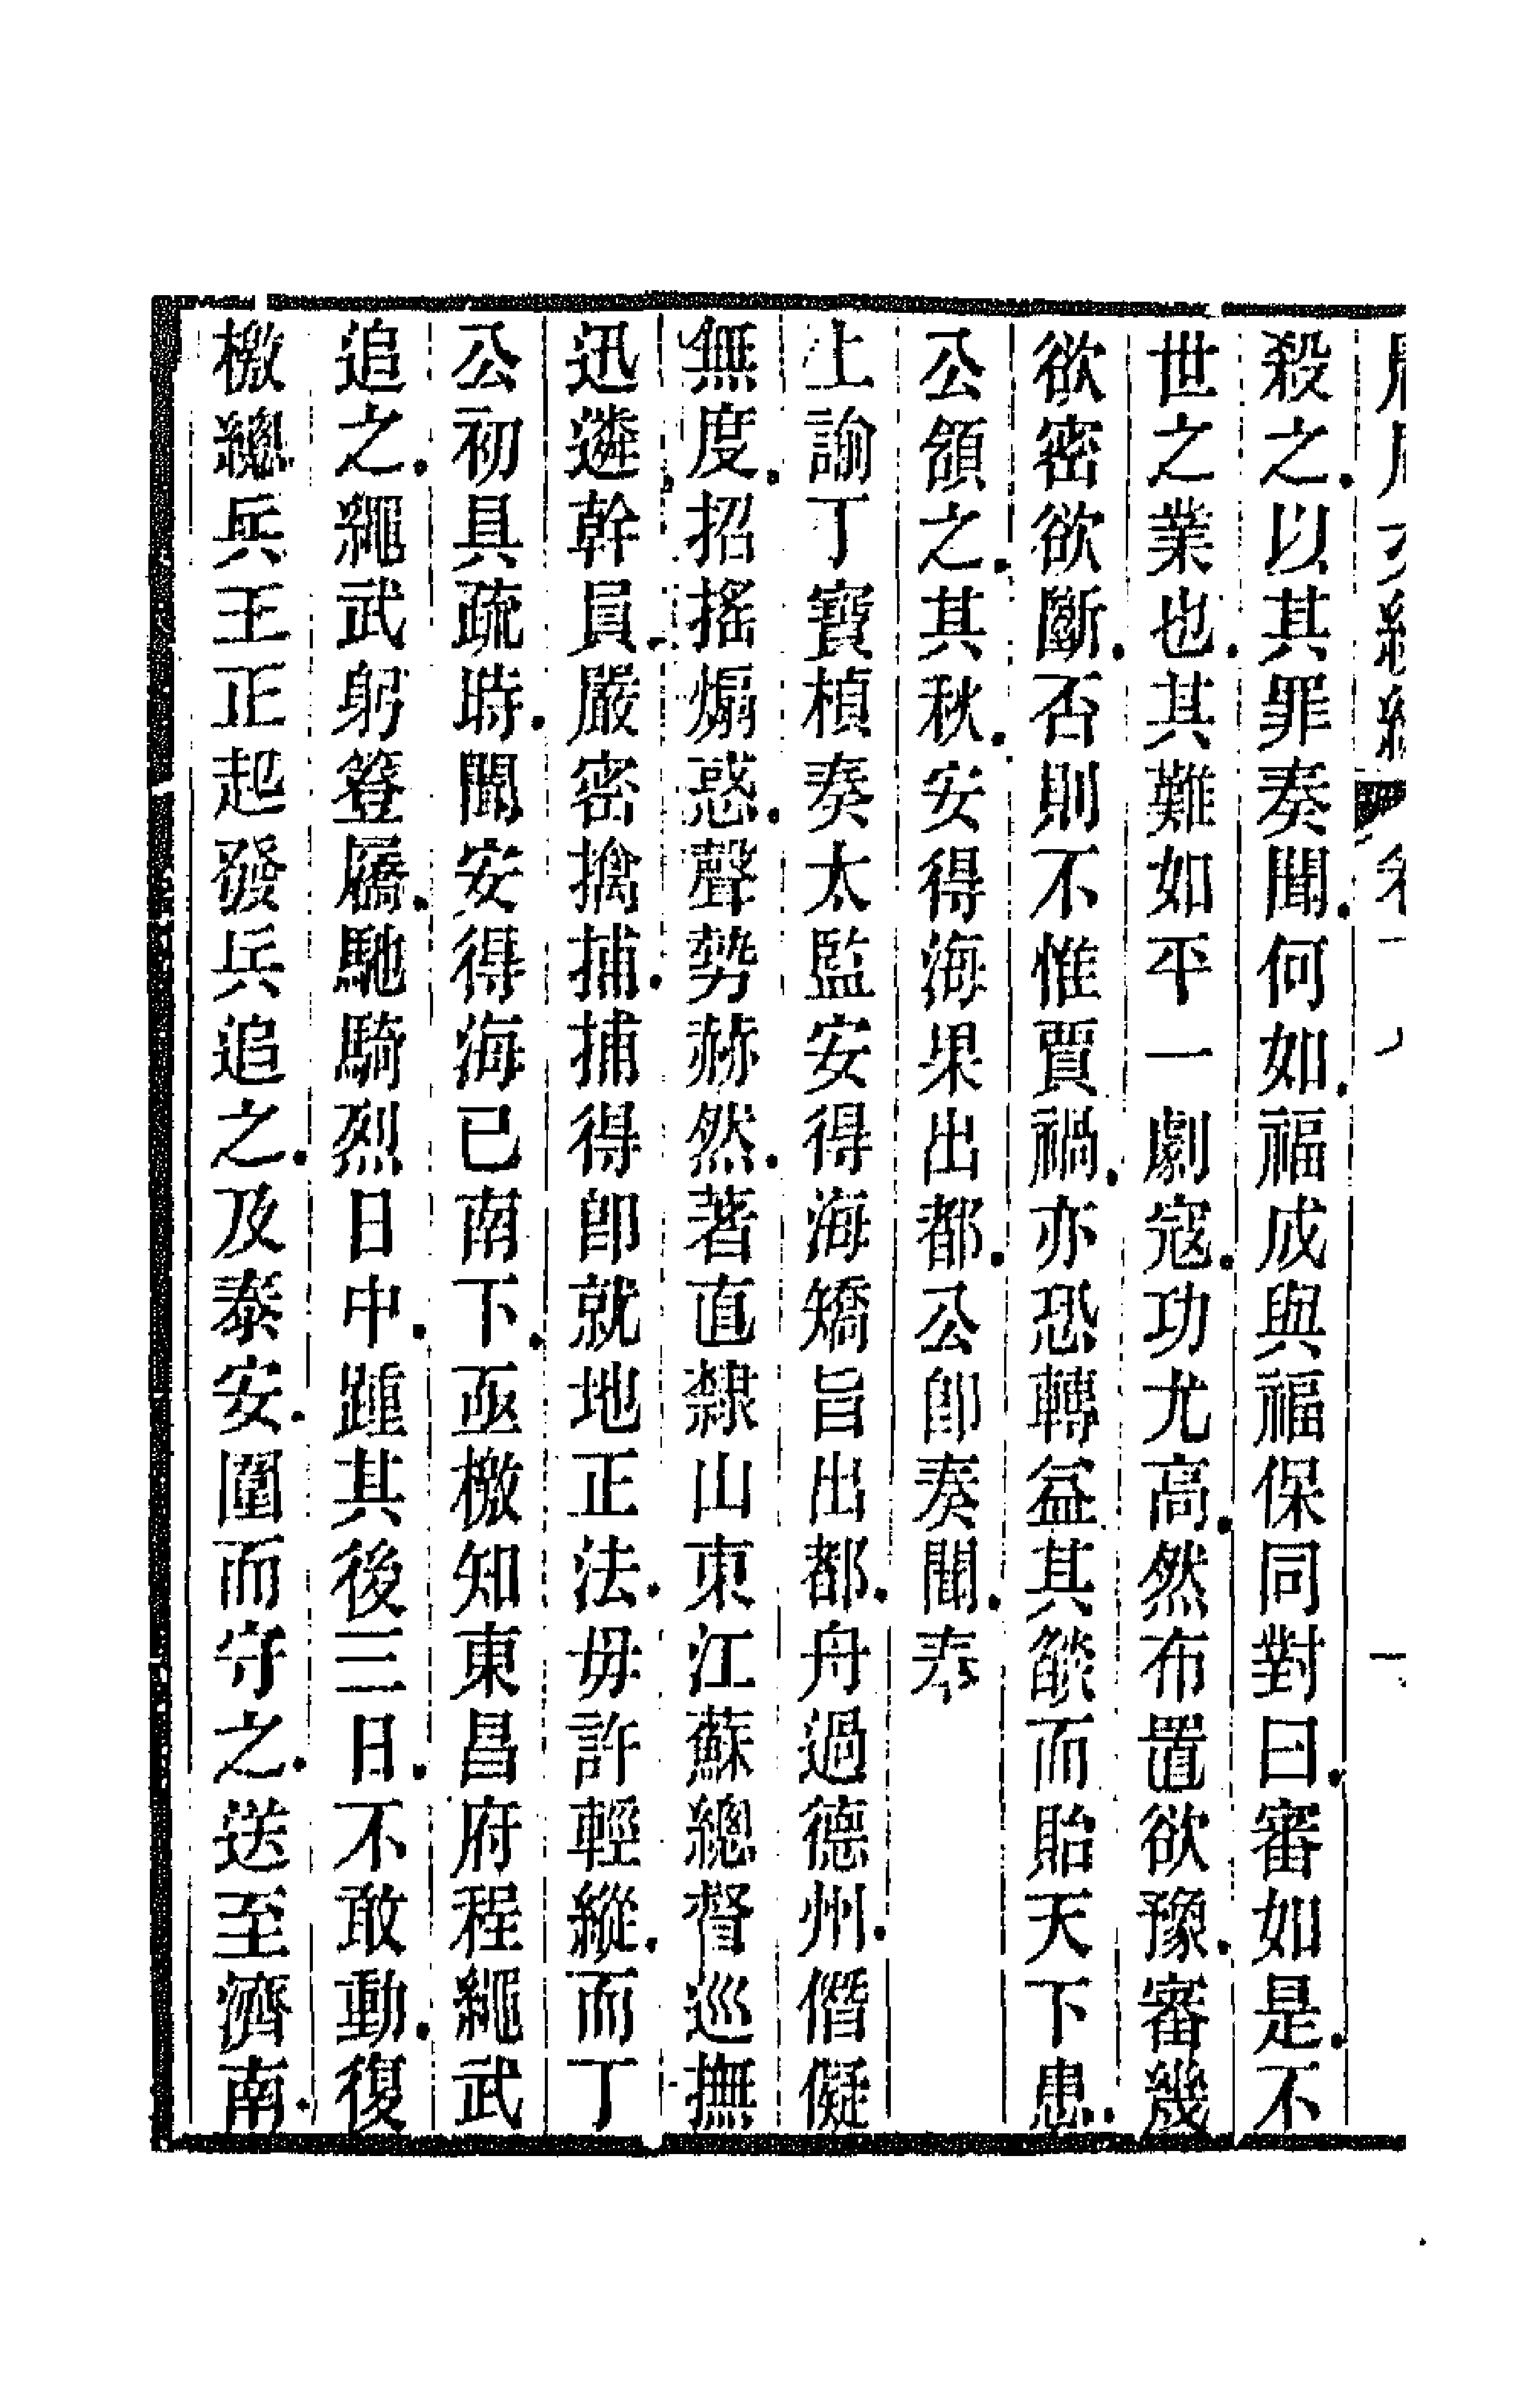 殺之以其罪奏聞何如福成與福保同對曰審如是不
世之業也其難如平一劇寇功尤高然布置欲豫審幾
欲密欲斷否則不惟賈禍亦恐轉益其燄而貽天下患
公頷之其秋安得海果出都公卽奏聞奉
上諭丁寶楨奏太監安得海矯旨出都舟過德州僭儗
無度招搖煽惑聲勢赫然著直隸山東江蘇總督巡撫
迅遴幹員嚴密擒捕捕得卽就地正法毋許輕縱而丁
公初具疏時聞安得海已南下亟檄知東昌府程繩武
追之繩武躬簦屩馳騎烈日中踵其後三日不敢動復
檄總兵王正起發兵追之及泰安圍而守之送至濟南